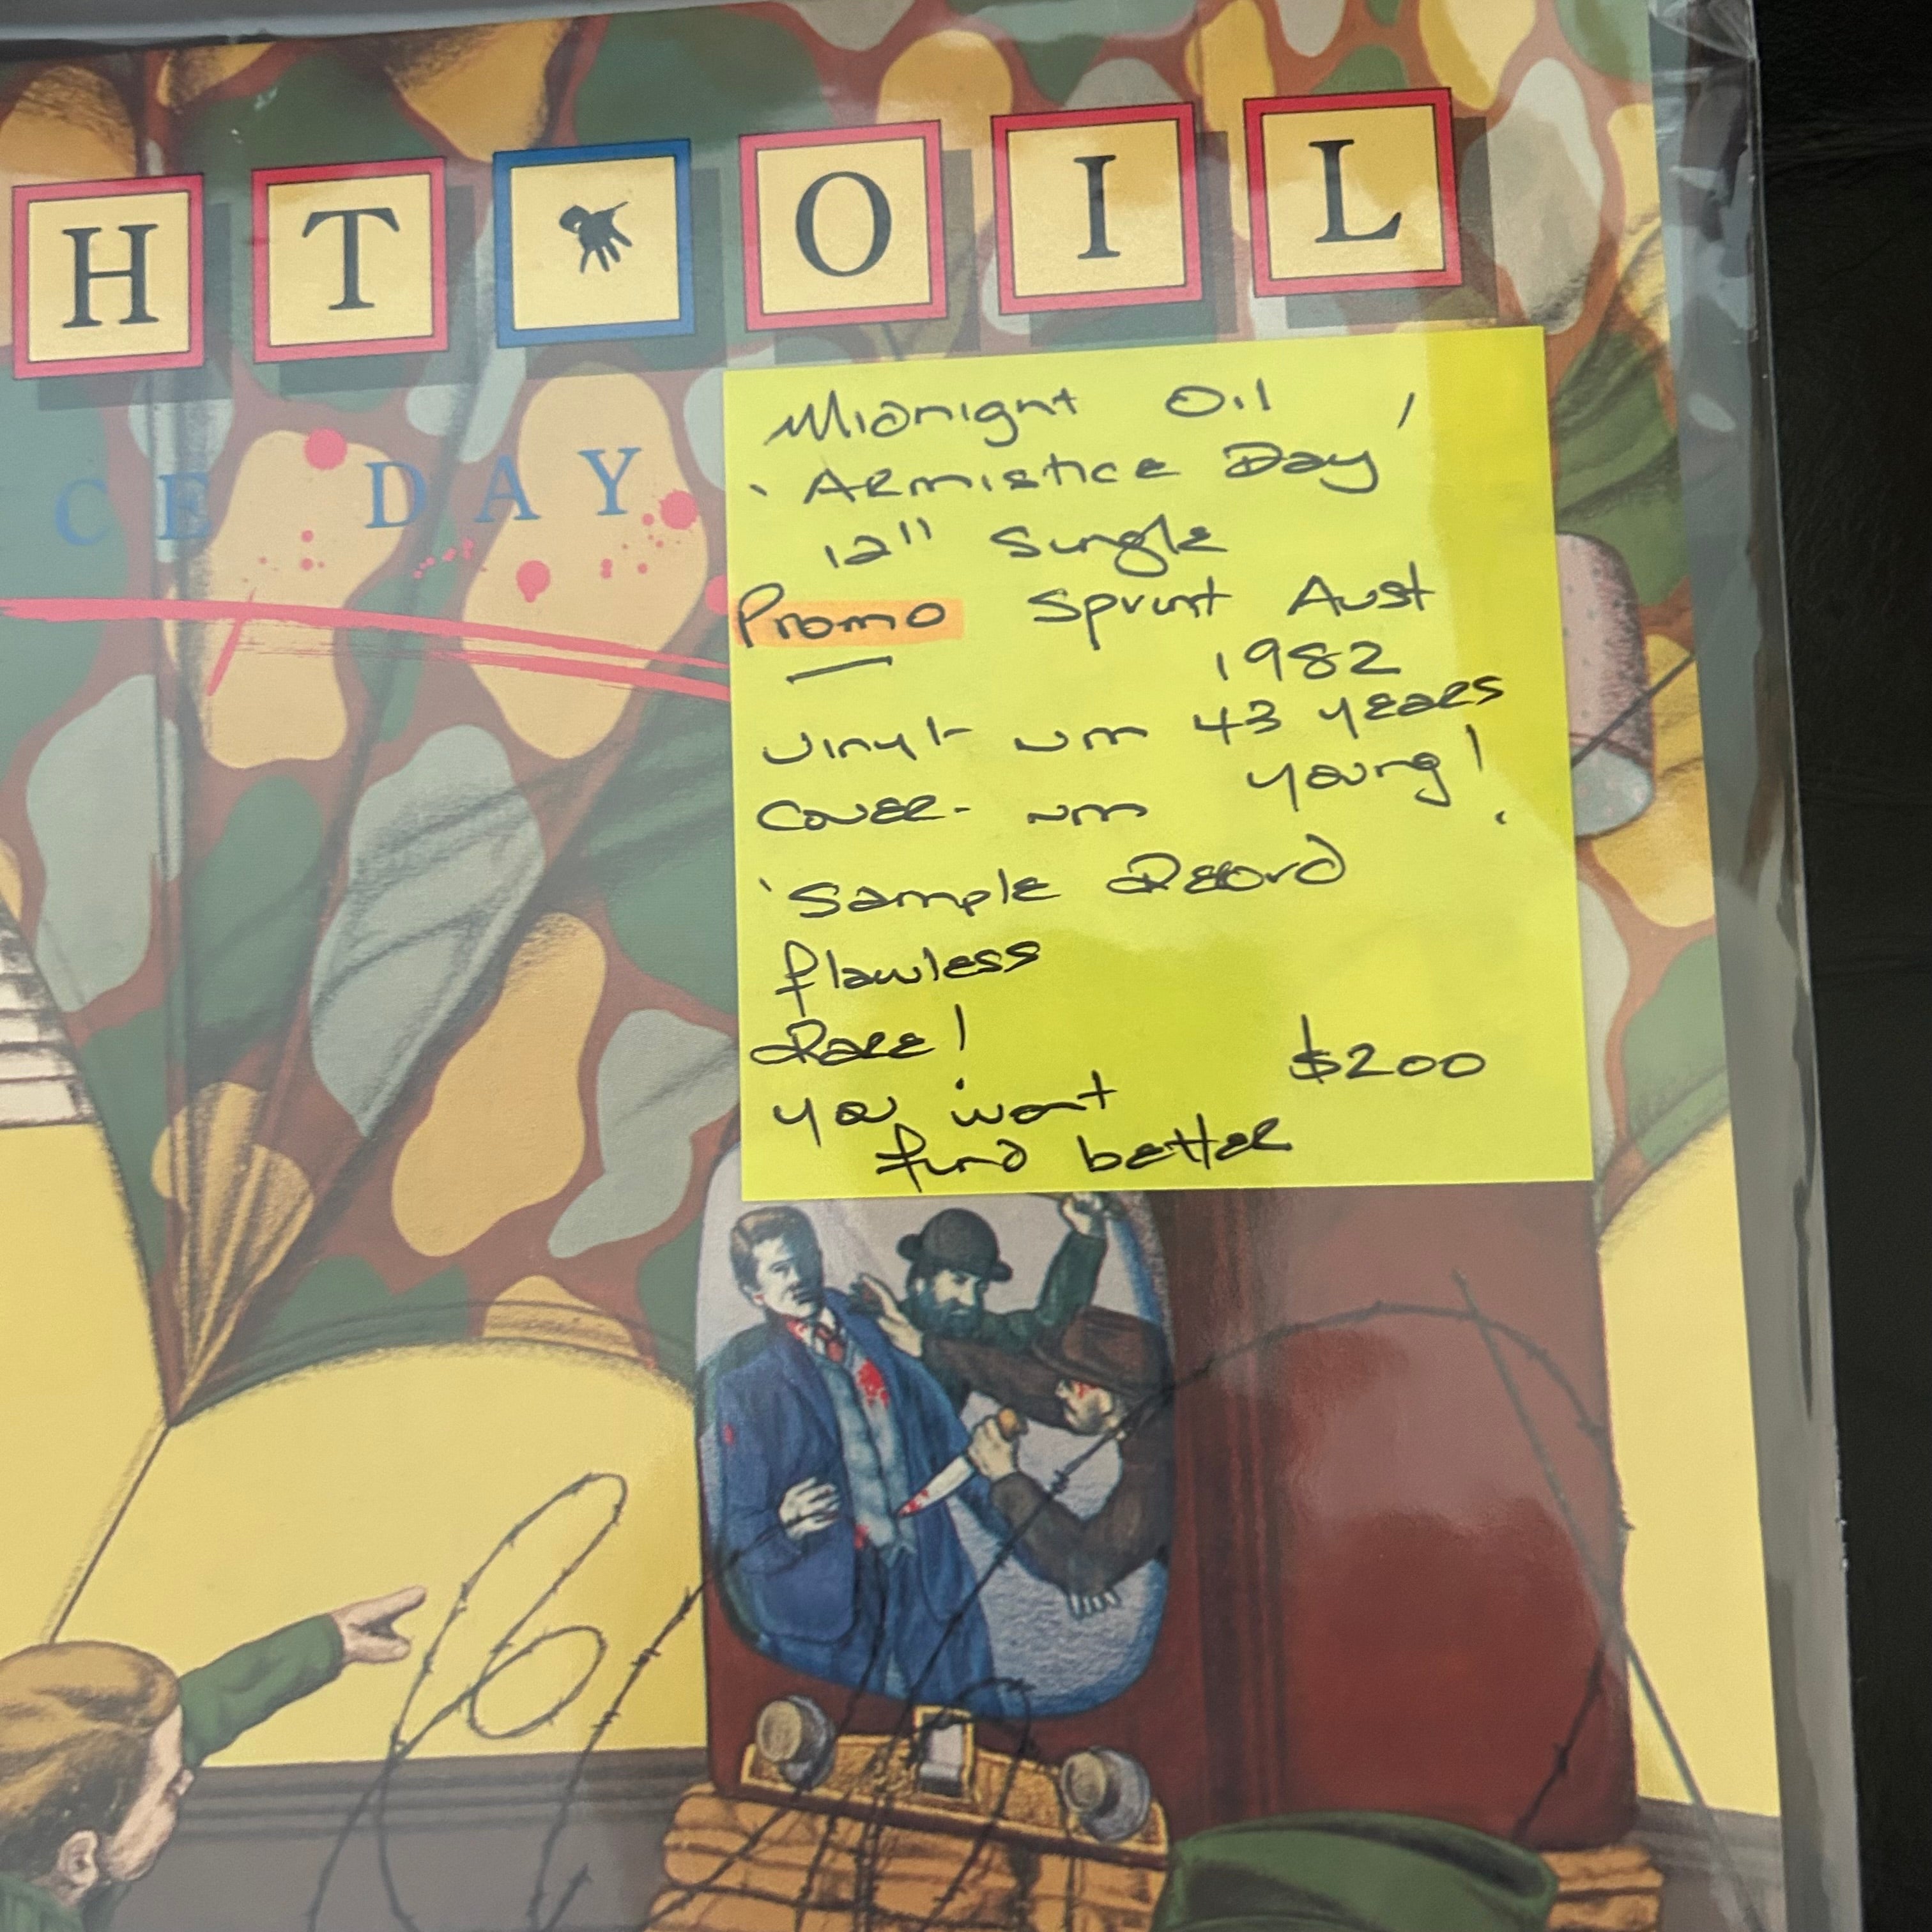 H T O I L
C E DAY
Midnight Oil
'Armistice Day'
12" Single
Promo Sprint Aust
1982
Vinyl - NM 43 years
Cover - NM young!
'Sample Record
flawless
Rare!
$200
you wont
find better